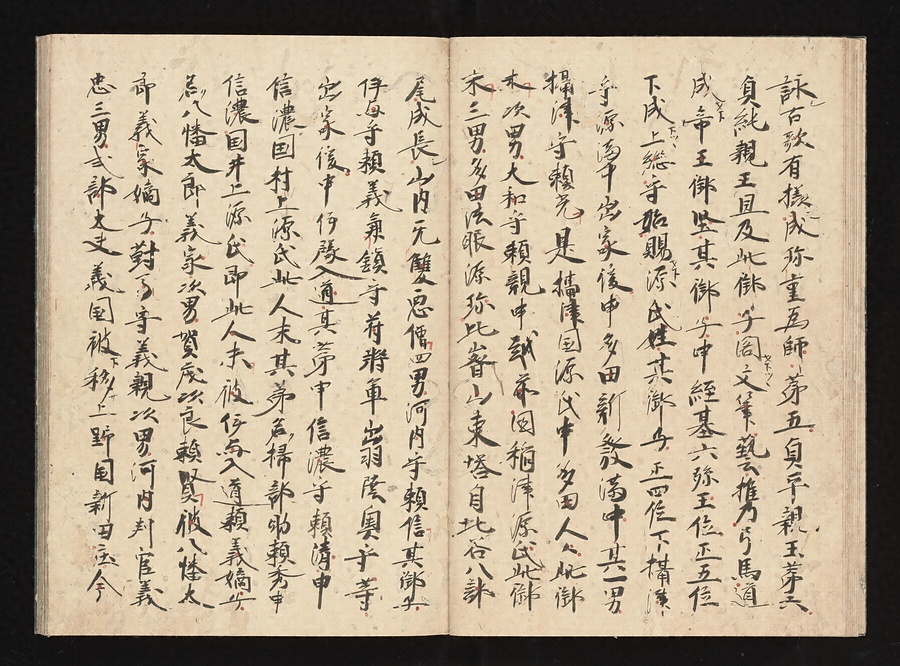 詠百歌有様成弥重為師第五貞平親王第六
貞純親王且及此御子閣文筆藝云携乃弓馬道
成帝王御此其御子申経基六弥王位正五位
下成上総守始賜源氏姓其御子正四位下摂津
守源満中出家後申多田新發満中其一男
摂津守頼光是摂津国源氏申多田人〻此御
末次男大和守頼親申越前国稲津源氏此御
末三男多田法眼源弥比睿山東塔自北谷八計
尾成長山内元雙悪僧四男河内守頼信其御子
伊与守頼義兼鎮守府将軍出羽陸奥守等
出家後申伊豫入道其弟申信濃守頼清申
信濃国村上源氏此人末其弟名掃部助頼秀申
信濃国井上源氏即此人末彼伊与入道頼義嫡子
名八幡太郎義家次男賀茂次良頼賢彼八幡太
郎義家嫡子對馬守義親次男河内判官義
忠三男式部大夫義国被移上野国新田庄今